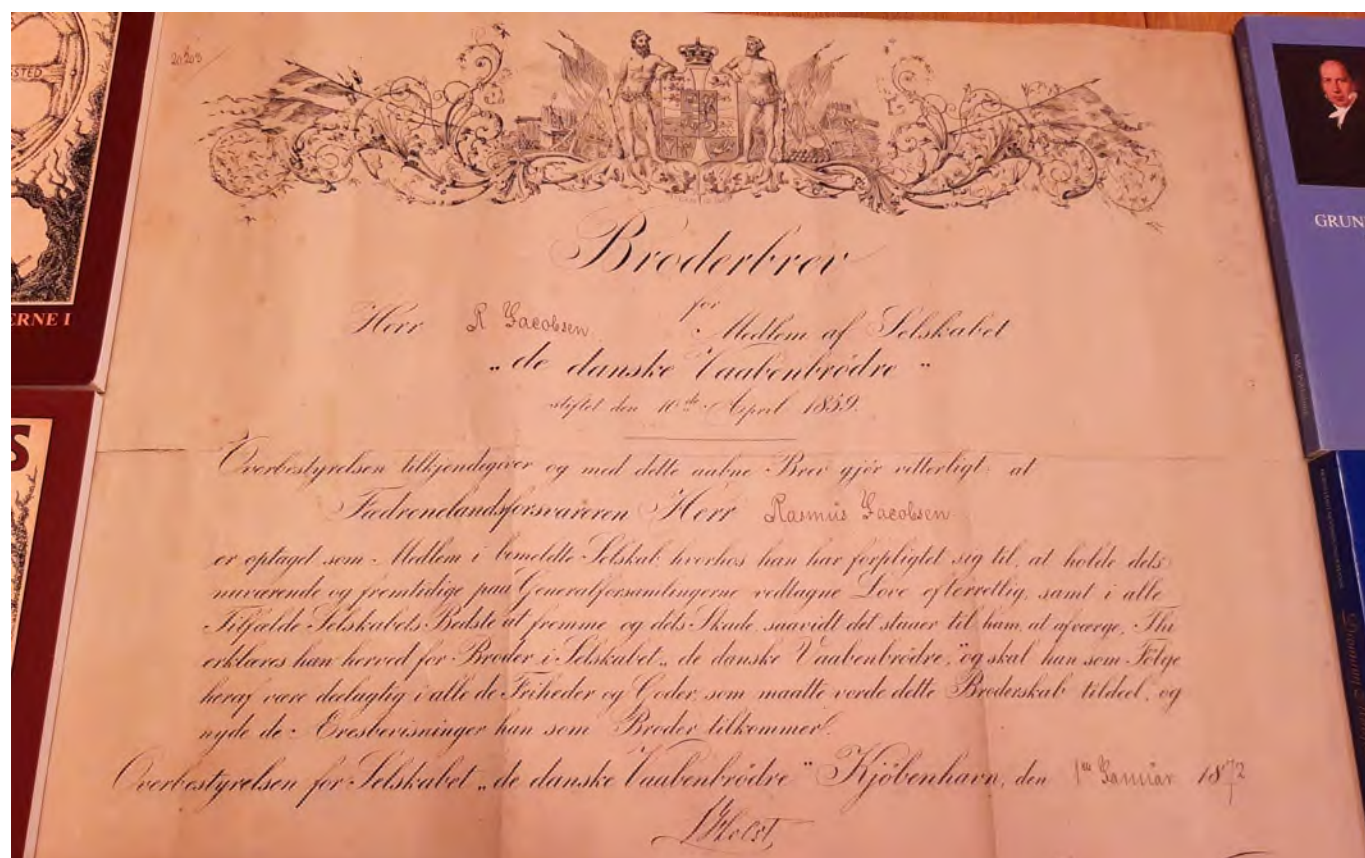 STED
ERNE I
S
GRUN
Broderbrev
for
Herr R Jacobsen Medlem af Selskabet
„de danske Vaabenbrödre"
stiftet den 10de April 1859.
Overbestyrelsen tilkjendegiver og med dette aabne Brev gjör vitterligt, at
Fædrenelandsforsvareren Herr Rasmus Jacobsen
er optaget som Medlem i bemeldte Selskab, hvorhos han har forpligtet sig til, at holde dets
nuværende og fremtidige paa Generalforsamlingerne vedtagne Love efterrettig, samt i alle
Tilfælde Selskabets Bedste at fremme og dets Skade, saavidt det staaer til ham, at afværge, Thi
erklæres han herved for Broder i Selskabet „de danske Vaabenbrödre," og skal han som Fölge
heraf være deelagtig i alle de Friheder og Goder, som maatte vorde dette Broderskab tildeel, og
nyde de Æresbevisninger han som Broder tilkommer.
Overbestyrelsen for Selskabet „de danske Vaabenbrödre" Kjöbenhavn, den 1ste Januar 1872
Holst